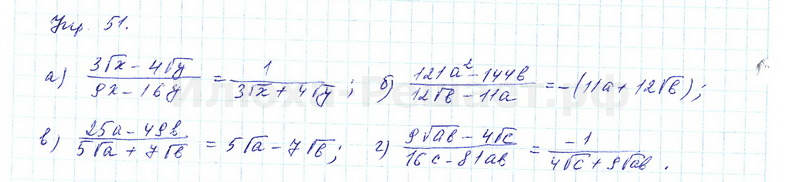 Упр. 51.
а) (3√x − 4√y)/(9x − 16y) = 1/(3√x + 4√y); б) (121a² − 144b)/(12√b − 11a) = −(11a + 12√b);
в) (25a − 49b)/(5√a + 7√b) = 5√a − 7√b; г) (9√ab − 4√c)/(16c − 81ab) = −1/(4√c + 9√ab).